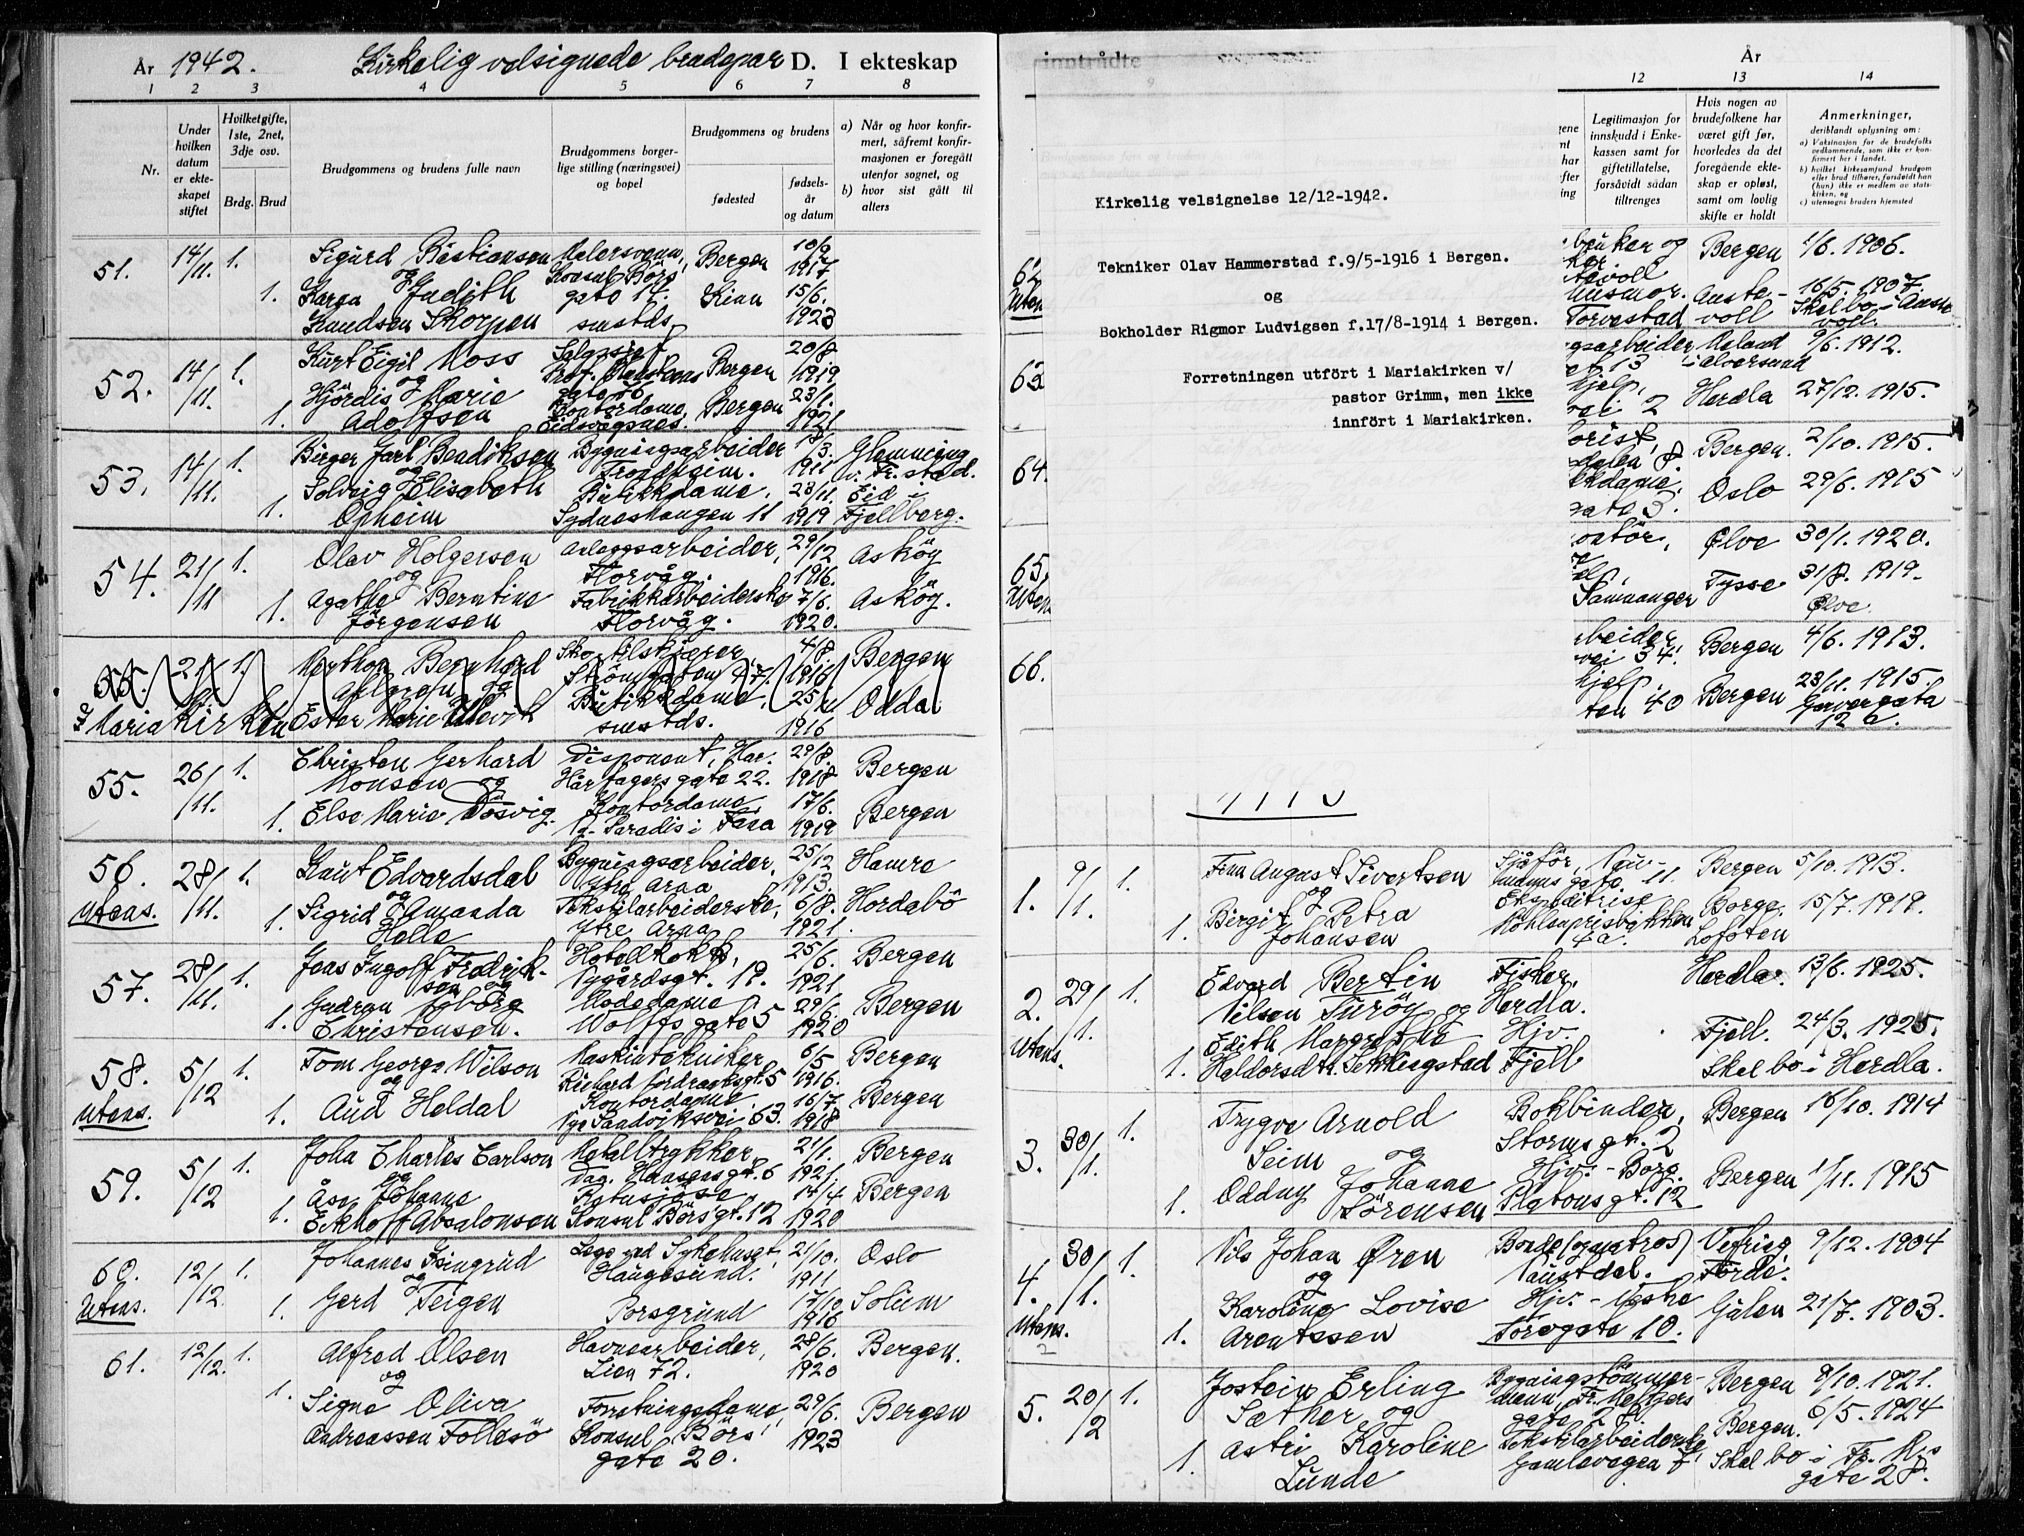 År 1942. Kirkelig velsignede brudepar D. I ekteskap
1 2 3 4 5 6 7 8
Nr.
Under hvilken datum er ekteskapet stiftet
Hvilketgifte, 1ste, 2net, 3dje osv.
Brdg. Brud
Brudgommens og brudens fulle navn
Brudgommens borgerlige stilling (næringsvei) og bopel
Brudgommens og brudens
fødested
fødselsår og datum
a) Når og hvor konfirmert, såfremt konfirmasjonen er foregått utenfor sognet, og
b) hvor sist gått til alters
51. 14/11. 1. Sigurd Bastiansen Malersvenn, Bergen 10/6 1917
og Konsul Börs
1. Karen Judith gate 14. Kinn 15/6.
Knudsen Skorpen smstds. 1923
52. 14/11. 1. Kurt Eigil Moss Bergen 20/8 1919
og
1. Hjördis Marie Kontordame, Bergen 23/1.
Adolfsen Eidsvågsnes. 1921
53. 14/11. 1. Birger Jarl Bendiksen Bygningsarbeider 1911 Glemming
og Trondheim. v. Fr.stad.
1. Solveig Elisabeth Butikkdame, 23/11. Eid i
Opheim Sydneshaugen 11 1919 Fjellberg.
54. 21/11 1. Olav Holgersen Anleggsarbeider, 29/12 Asköy
og Florvåg. 1916.
1. Agathe Berntine Fabrikkarbeiderske 7/6. Asköy.
Jörgensen Florvåg. 1920.
55. 21/ 1. Bernhard Sko-tilskjærer 4/8 Bergen
og 1916
se Mariakirken Ester Marie Ulevik Butikkdame, 25/ Oddal
smstds. 1916
55. 26/11. 1. Christen Gerhard Disponent, Har. 29/8. Bergen
Monsen og Hårfagers gate 22. 1918
1. Else Marie Dösvig. Kontordame, 17/6. Bergen
Paradis i Fana 1919
56. 28/11. 1. Knut Edvardsdal Bygningsarbeider, 25/12 Hamre
Utens. og Ytre Arna 1913.
1. Sigrid Amanda Tekstilarbeiderske, 6/8. Hordabö
Helle Ytre Arna 1921.
57. 28/11. 1. Jens Ingolf Fredriksen og Hotellkokk, 25/6. Bergen
Nygårdsgt. 19. 1921
1. Gudrun Ingborg Modedame 29/6. Bergen
Christensen. Wolffs gate 5 1920
58. 5/12 1. Tom George Wilson Maskintekniker 6/5 Bergen
Utens. og Richard Nordraaksgt. 5 1916.
1. Aud Heldal Kontordame 16/7 Bergen
Nye Sandviksvei 63. 1918
59. 5/12 1. John Charles Carlson Metalltrykker 21/1. Bergen
og Dag. Hansensgt. 6 1921
1. Åse Johanne 14/4 Bergen
Eckhoff Absalonsen Konsul Börs gt. 12 1920
60. 12/12. 1. Johannes Isingrud Lege ved Sykehuset, 21/10. Oslo
Utens. og Haugesund. 1911
1. Gerd Teigen Porsgrund 17/10 Solum
1916
61. 12/12. 1. Alfred Olsen Havnearbeider, 28/6. Bergen.
og Lien 72. 1920
1. Signe Oliva Forretningsdame 29/6. Bergen
Andreassen Follesö Konsul Börs 1923
gate 20.
inntrådte År
9 12 13 14
Legitimasjon for innskudd i Enkekassen samt for giftetillatelse, forsåvidt sådan tiltrenges
Hvis nogen av brudefolkene har været gift før, hvorledes da det foregående ekteskap er opløst, samt om lovlig skifte er holdt
Anmerkninger,
deriblandt oplysning om:
a) Vaksinasjon for de brudefolks vedkommende, som ikke er konfirmert her i landet.
b) hvilket kirkesamfund brudgom eller brud tilhører, forsåvidt han (hun) ikke er medlem av statskirken, og
c) utensogns bruders hjemsted
Kirkelig velsignelse 12/12-1942.
Tekniker Olav Hammerstad f.9/5-1916 i Bergen.
og
Bokholder Rigmor Ludvigsen f.17/8-1914 i Bergen.
Forretningen utfört i Mariakirken v/
pastor Grimm, men ikke
innfört i Mariakirken.
62 bruker og Bergen 1/6. 1906.
Utens
husmor. Auste- 16/5. 1907.
Torvestad voll Skal bo i Austevoll.
63 gsarbeider Meland 9/6. 1912.
13 i Alversund
hjelp, Herdla 27/12. 1915.
vei 2
64. Bergen. 2/10. 1915.
dame, Oslo 29/6. 1915
gate 3.
65. Ølve 30/1. 1920.
Utens
Tysse 31/8. 1919.
Samnanger Ølve
66. rbeider Bergen 4/6. 1913.
vei 34.
hjelp. Bergen 23/11. 1915.
ten 40 Garvergata
12 a.
1. 9/1. 1. Finn August Sivertsen Sjåför, Bergen 5/10. 1913.
og gate. 11.
1. Birgit Petra Ekspeditrise Borge, 15/7. 1919.
Johansen Möhlenprisbakken Lofoten
4 a.
2. 29/1. 1. Edvard Bertin Fisker, Herdla. 13/6. 1925.
Utens. Nilsen Turöy og Herdla.
Edith Margrethe Hjv. Fjell. 24/3. 1925.
1. Haldorsdtr. Sekkingstad Fjell Skal bo i Herdla.
3. 30/1. 1. Trygve Arnold Bokbinder, Bergen 16/10. 1914
Seim og Stormsgt. 2
1. Oddny Johanne Hjv. - Borg. Bergen 1/11. 1915
Sörensen Platousgt. 12
4. 30/1. 1. Nils Johan Øren Bonde (og matros) Vefring 9/12. 1904
Utens. og Naustdal. Förde.
2 Karoline Lovise Hjv. - Øvre Gulen 21/7. 1903.
1. Arentssen Torvgate 10.
5. 20/2 1. Jostein Erling Bygningstömmer- Bergen 9/10. 1921.
Sæther og mann, Fr. Meltzers
gate 28. Bergen. 6/5. 1924
1. Astri Karoline Tekstilarbeiderske
Lunde Gamlevegen 7 Skal bo i Fr. M.s
gate 28.